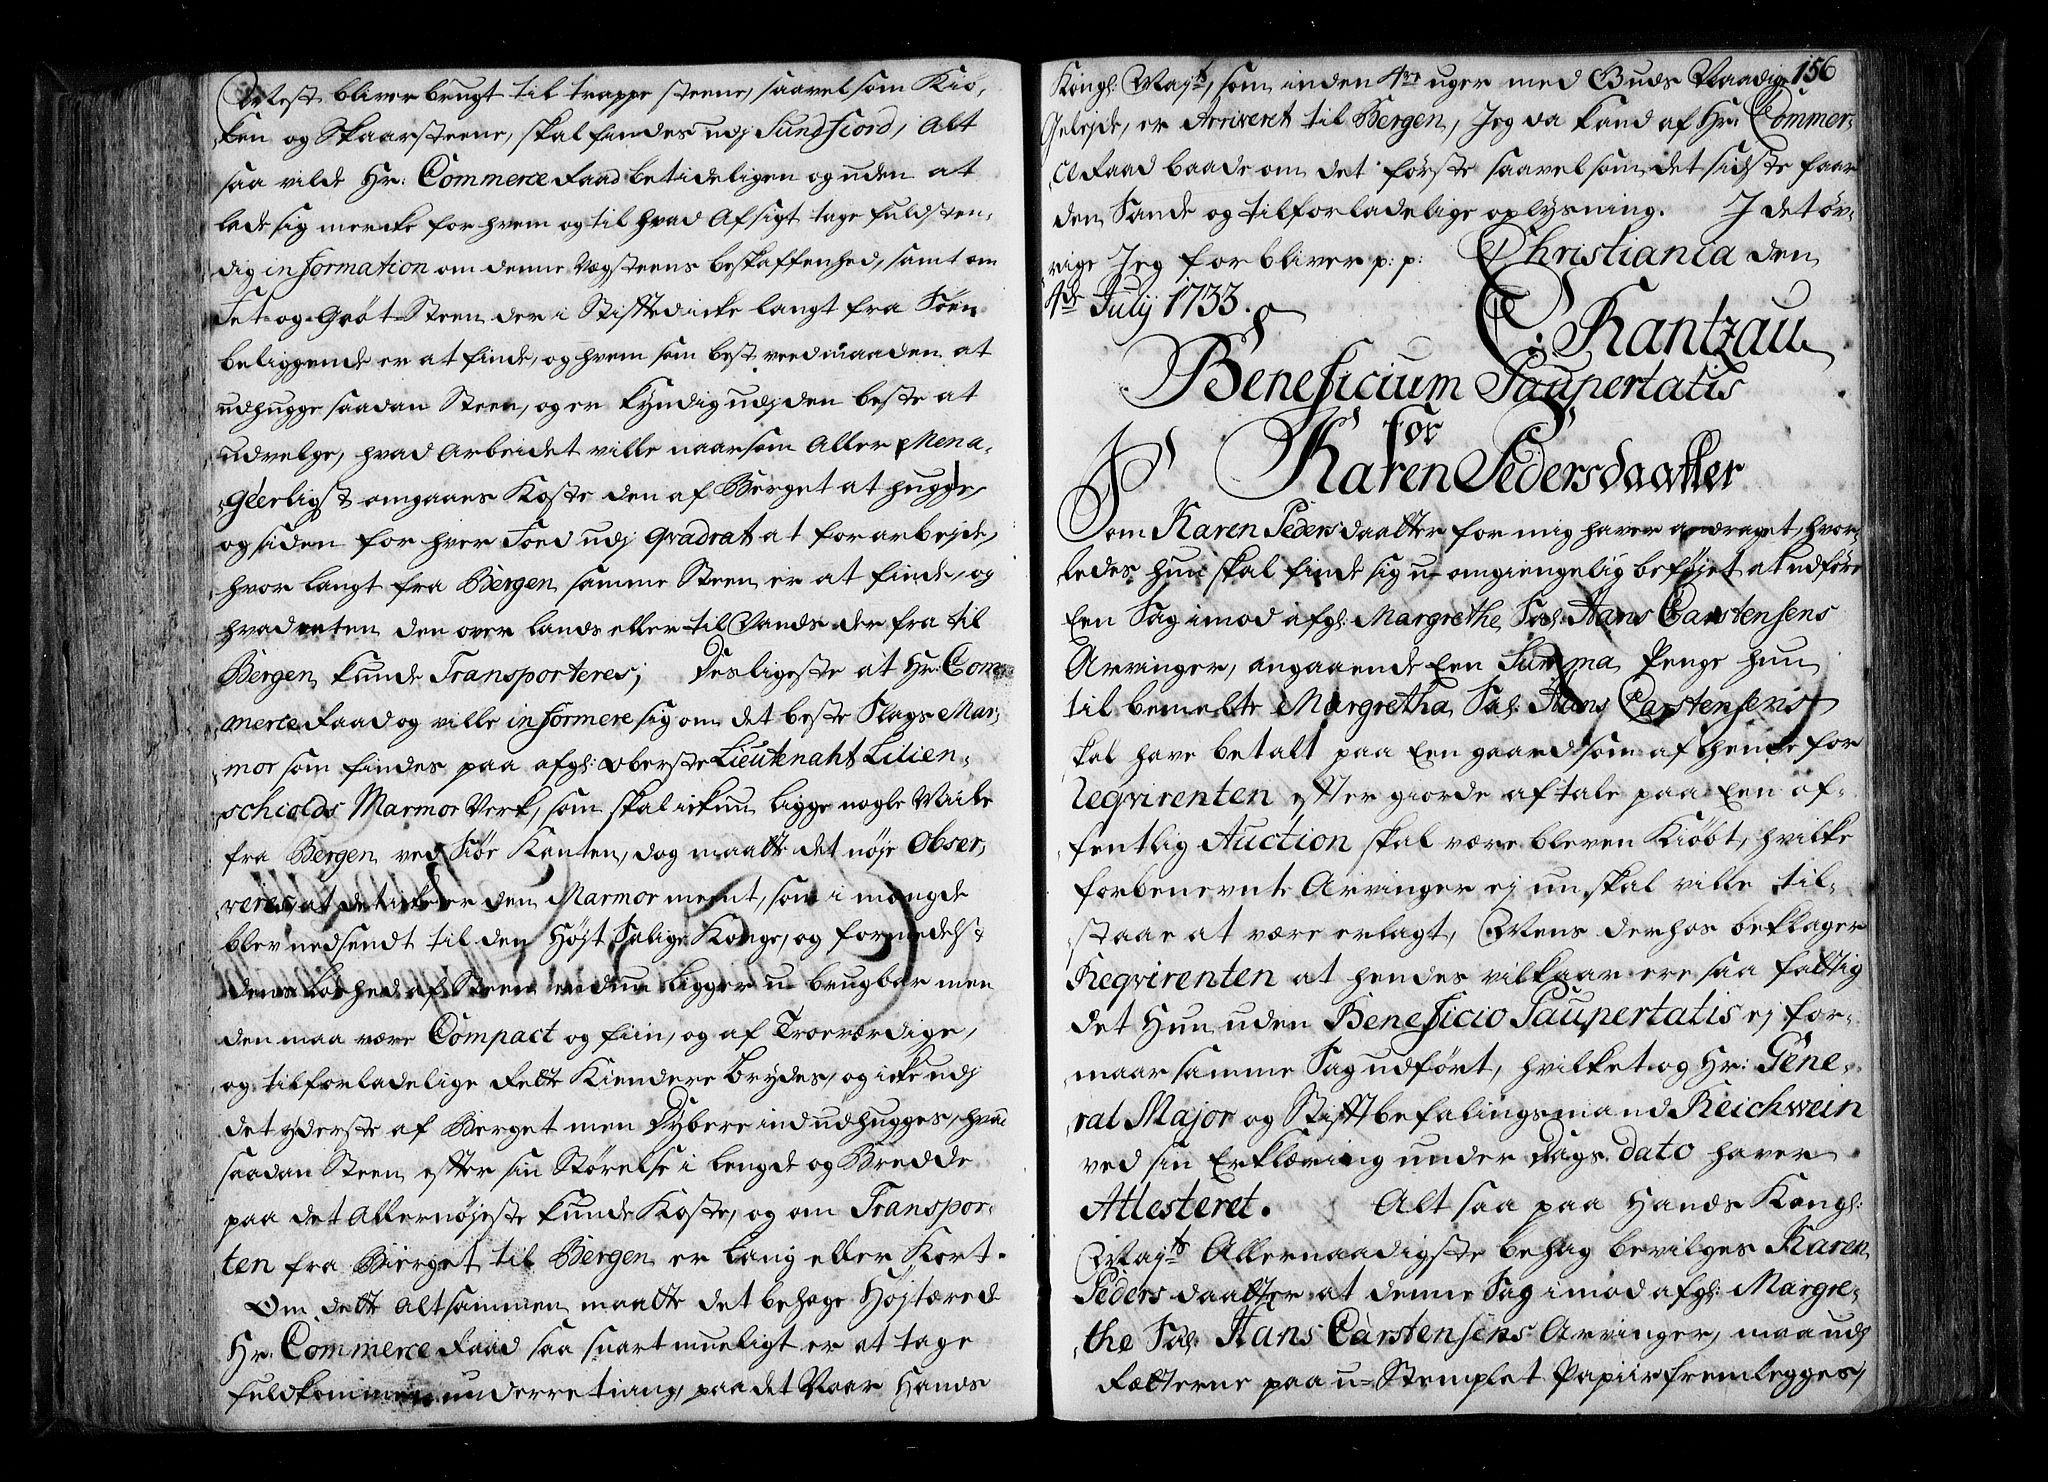 Mest bliver brugt til trappe steene, saavel som Kiø,
ken og Skaarsteene, skal findes udj Sundfiord, Alt
saa vilde Hr: Commerce Raad betideligen og uden at
lade sig mercke for hvem og til hvad Afsigt tage fuldsten-
dig information om denne Vegsteens beskaffenhed, samt om
Fet og Grøt Steen der i Stifftet icke langt fra Søen
beliggende er at finde, og hvem som best veed maaden at
udhugge saadan Steen, og er kyndig udj den beste at
udvelge, hvad Arbeidet ville naar som Aller Mena-
géerligst omgaaes Koste den af Berget at hugge,
og siden for hver Foed udj Qvadrat at forarbejde,
hvor langt fra Bergen samme Steen er at finde, og
hvad enten den over Lands eller til Vands der fra til
Bergen kunde Transporteres; Desligeste at Hr: Com-
merce Raad og ville informere sig om det beste Slags Mar-
mor som findes paa afgl: oberste Lieutenant Lilien-
schiolds Marmor Verk, som skal ickun ligge nogle Miile
fra Bergen ved Siøe Kanten, dog maatte det nøje Obser-
veres, at det icke er den Marmor meent, som i mengde
blev nedsendt til den Højst Salige Konge, og formedelst
dens Løshed af Steen endnu ligger u-brugbar men
den maa være Compact og fiin, og af Troeværdige,
og tilforladelige Rette Kiendere brydes, og icke udj
det yderste af Berget men Dybere ind udhugges, hvad
saadan Steen efter sin Størelse i Lengde og Bredde
paa det Allernøjeste kunde Koste, og om Transpor-
ten fra Bierget til Bergen er Lang eller Kort.
Om dette Altsammen maatte det behage Højtærede
Hr: Commerce Raad saa snart mueligt er at tage
fuldkommen underretning, paa det Naar Hands
156
Kongl: Mayt, som inden 4re uger med Guds Naadige
Gelejde, er Arriveret til Bergen, Jeg da kand af Hr: Commer-
ce Raad baade om det første saavelsom det sidste faae
den Sande og tilforladelige oplysning. I det øv-
rige Jeg forbliver p: p: Christiania den
4de July 1733.
C: Rantzau
Beneficium Paupertatis
for
Karen Pedersdaatter
Som Karen Pedersdaatter for mig haver andraget, hvor-
ledes hun skal finde sig u-omgiengelig beføjet at udføre
Een Sag imod afgl: Margrethe Sal: Hans Carstensens
Arvinger, angaaende Een Summa Penge hun
til bemelte Margretha Sal: Hans Carstensens
skal have betalt paa Een gaard som af hende for
Reqvirenten efter giorde aftale paa Een of-
fentlig Auction skal være bleven Kiøbt, hvilke
forbenevnte Arvinger ej nu skal ville til-
staae at være erlagt, Mens derhos beklager
Reqvirenten at hendes vilkaar ere saa fattig
det Hun uden Beneficio Paupertatis ej for-
maar samme Sag udført, hvilket og Hr: Géne-
ral Major og Stifftbefalingsmand Reichwein
ved sin Erklæring under Dags dato haver
Attesteret. Alt saa paa Hands Kongl:
Mayts Allernaadigste behag bevilges Karen
Pedersdaatter at denne Sag imod afgl: Margre-
the Sal: Hans Carstensens Arvinger, maa udj
Retterne paa u-Stemplet Papiir fremlegges,